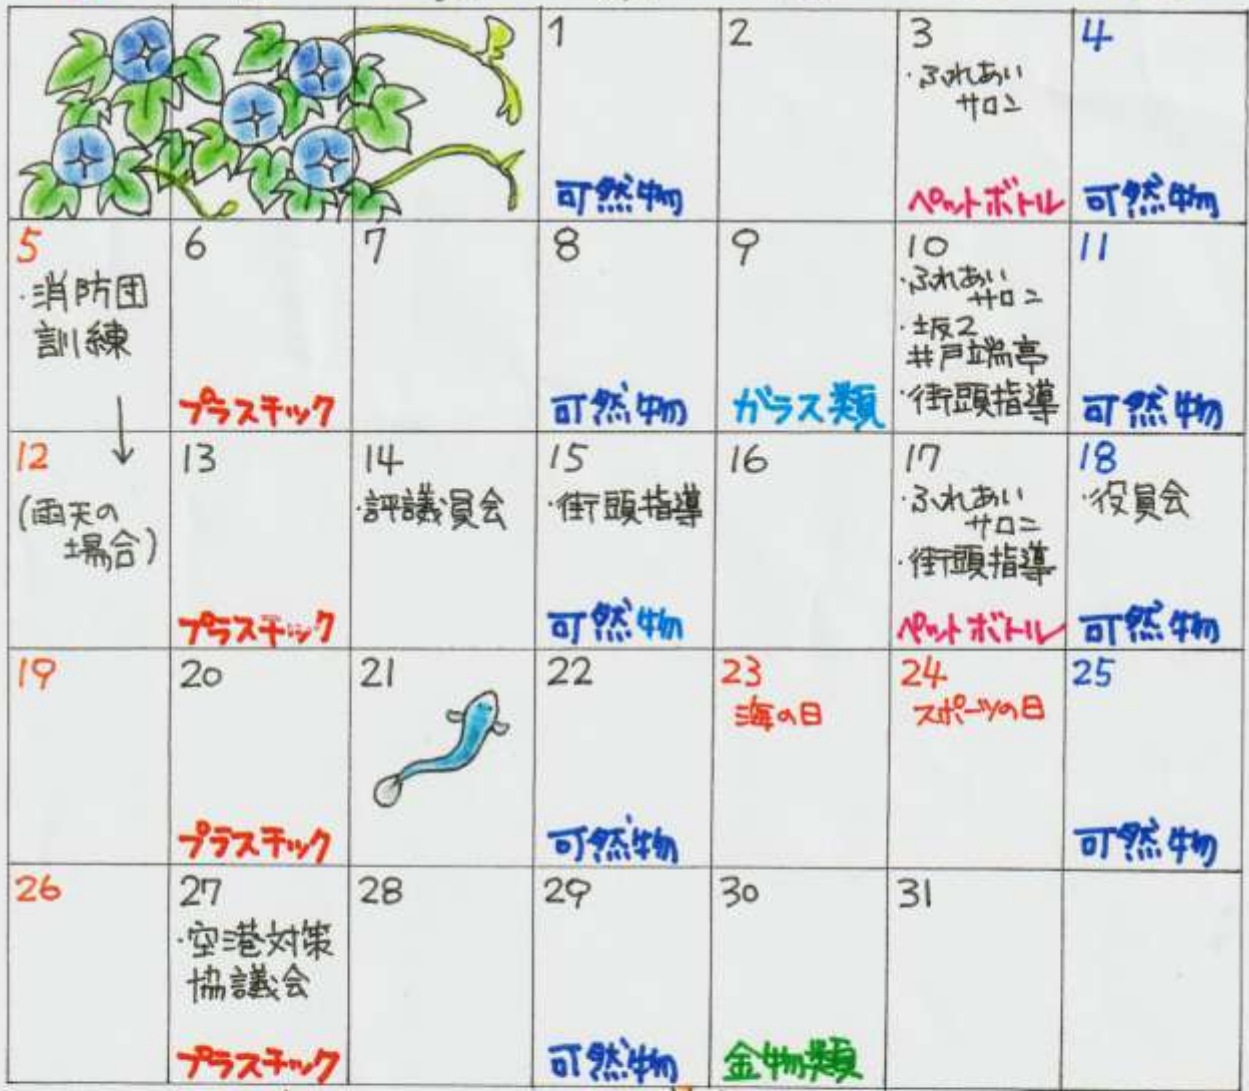 1
可燃物
2
3
・ふれあい
サロン
ペットボトル
4
可燃物
5
・消防団
訓練
6
プラスチック
7
8
可燃物
9
ガラス類
10
・ふれあい
サロン
・坂2
井戸端亭
・街頭指導
11
可燃物
12
(雨天の
場合)
13
プラスチック
14
・評議員会
15
・街頭指導
可燃物
16
17
・ふれあい
サロン
・街頭指導
ペットボトル
18
・役員会
可燃物
19
20
プラスチック
21
22
可燃物
23
海の日
24
スポーツの日
25
可燃物
26
27
・空港対策
協議会
プラスチック
28
29
可燃物
30
金物類
31